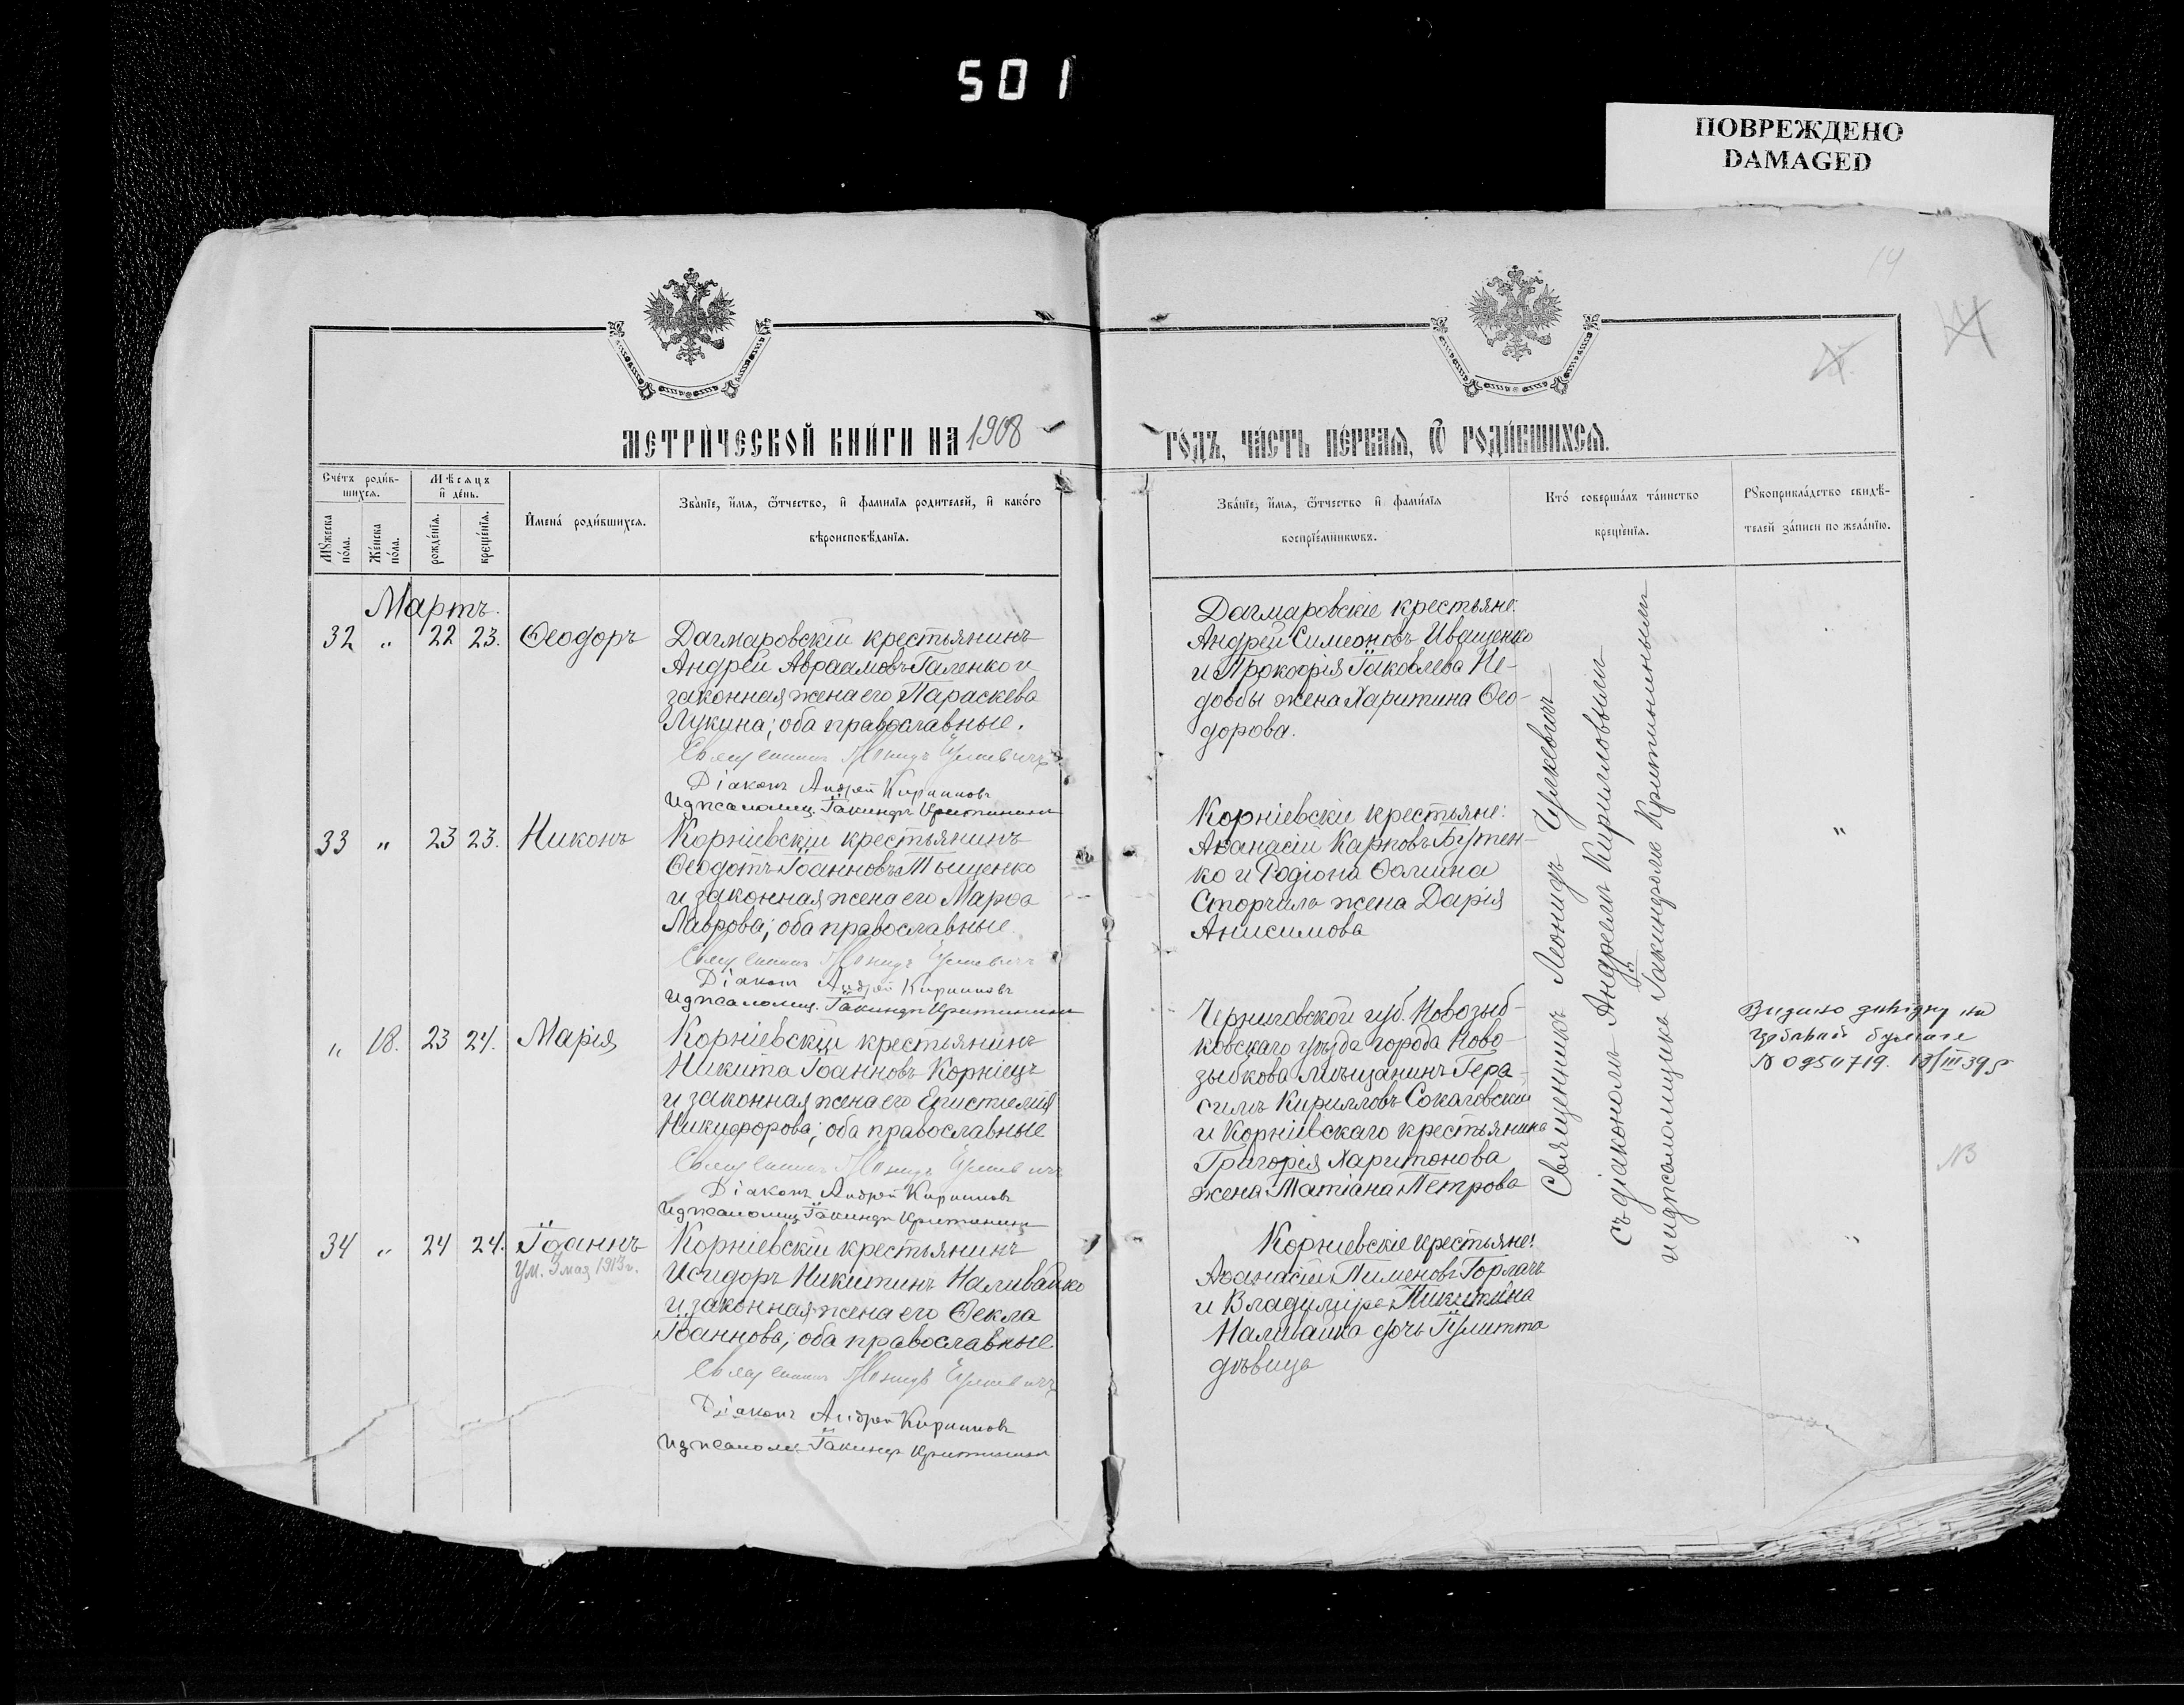 501
ПОВРЕЖДЕНО
DAMAGED
14
МЕТРИ́ЧЕСКОЙ КНИ́ГИ НА 1908
ГО́ДЪ, ЧА́СТЬ ПЕ́РВАЯ, Ѿ РОДИ́ВШИХСЯ.
Сче́тъ роди́в-
шихся.
Мѣсяцъ
и҆ де́нь.
Мꙋжеска
по́ла.
Же́нска
по́ла.
рожде́нїя.
креще́нїя.
И҆мена́ роди́вшихся.
Зва́нїе, и҆́мя, ѻ҆́тчество, и҆ фами́лїя роди́телей, и҆ како́го
вѣроисповѣ́данїя.
Зва́нїе, и҆́мя, ѻ҆́тчество и҆ фами́лїя
воспрїе́мникѡвъ.
Кто́ соверша́лъ та́инство
креще́нїя.
Рꙋкоприкла́дство свидѣ́-
телей за́писи по жела́нїю.
Мартъ.
32 " 22 23. Ѳеодоръ
Дагмаровскій крестьянинъ
Андрей Авраамовъ Галенко и
законная жена его Параскева
Лукина; оба православные.
Священникъ Леонидъ
Діаконъ Андрей Кирилловъ
И д псаломщ. Іакинфъ Критининъ
Дагмаровскіе крестьяне:
Андрей Симеоновъ Иващенко
и Прокофія Іаковлева Не-
добы жена Харитина Ѳео-
дорова.
33 " 23 23. Никонъ
Корніевскій крестьянинъ
Ѳеодотъ Іоанновъ Тыщенко
и законная жена его Марѳа
Лаврова; оба православные.
Священникъ Леонидъ
Діаконъ Андрей Кирилловъ
И д псаломщ. Іакинфъ Критининъ
Корніевскіе крестьяне:
Аѳанасій Карповъ Бутен-
ко и Родіона Ѳомина
Сторчила жена Дарія
Анисимова
"
" 18. 23 24. Марія
Корніевскій крестьянинъ
Никита Іоанновъ Корніецъ
и законная жена его Епистимія
Никифорова; оба православные
Священникъ Леонидъ
Діаконъ Андрей Кирилловъ
И д псаломщ Іакинфъ Критининъ
Черниговской губ. Новозыб-
ковскаго уѣзда города Ново-
зыбкова мѣщанинъ Гера-
симъ Кирилловъ Сокаловскій
и Корніевскаго крестьянина
Григорія Харитонова
жена Татіана Петрова
Видано довідку на
гербовій бумаге
N 0950719. III 39 р
NB
34 " 24 24. Іоаннъ
ум. 3 мая 1913 г.
Корніевскій крестьянинъ
Исидоръ Никитинъ Наливайко
и законная жена его Ѳекла
Іоаннова; оба православные.
Священникъ Леонидъ
Діаконъ Андрей Кирилловъ
И д псаломщ Іакинфъ Критининъ
Корніевскіе крестьяне:
Аѳанасій Пименовъ Горлачъ
и Владиміра Никитина
Наливайка дочь Іулитта
дѣвица
"
Священникъ Леонидъ
съ діакономъ Андреемъ Кирилловымъ
и и д псаломщика Іакинфомъ Критининымъ